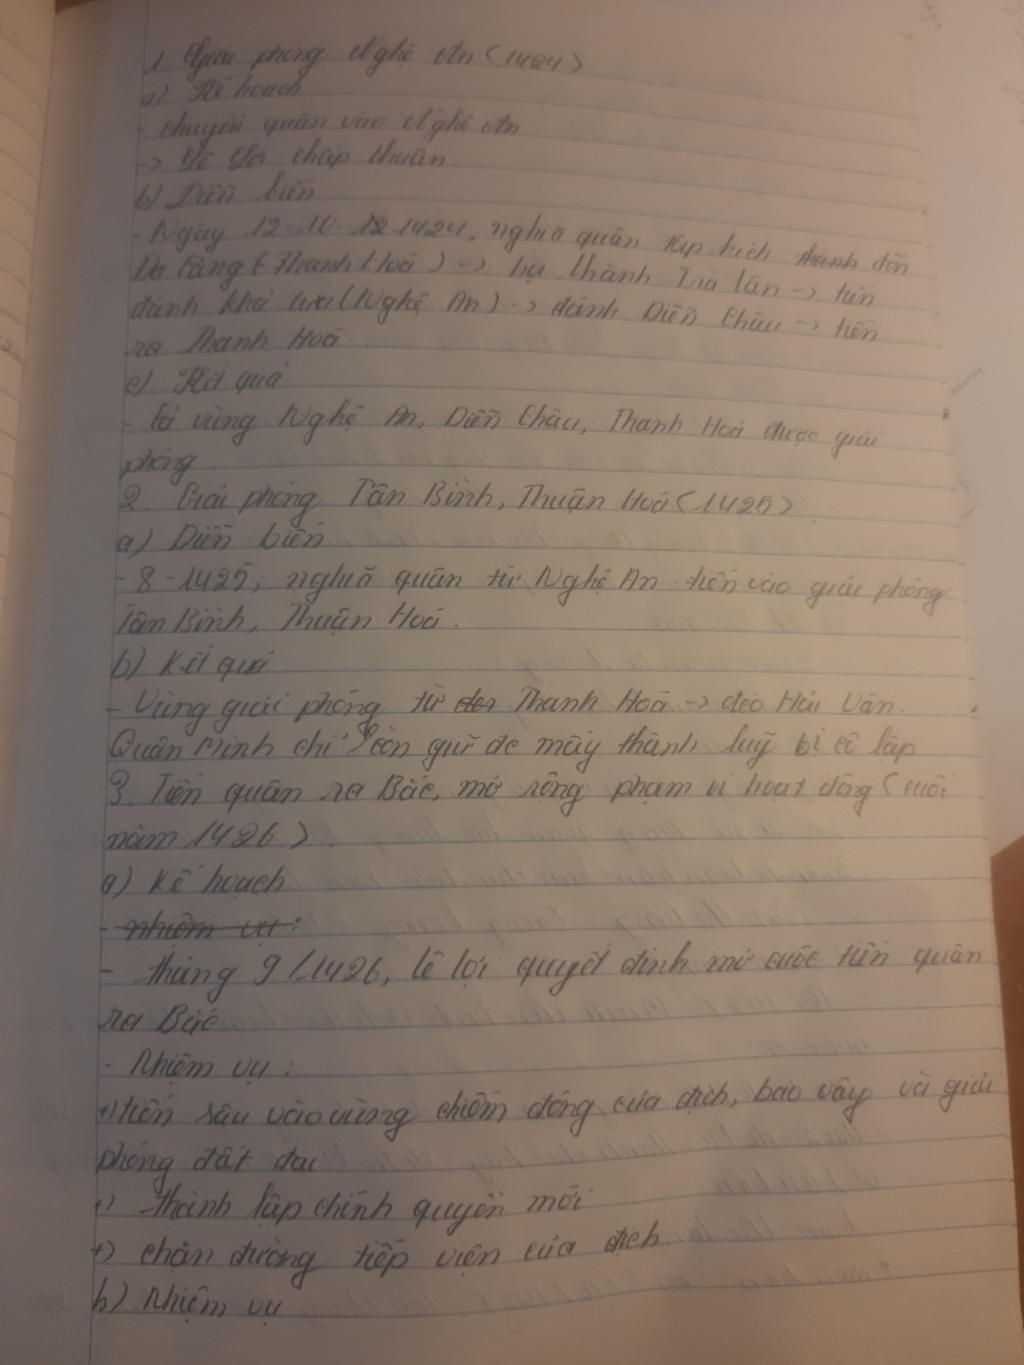 1. Giải phóng Nghệ An (1424)
a) Kế hoạch
- chuyển quân vào Nghệ An
-> Lê Lợi chấp thuận
b) Diễn biến
- Ngày 12-10-1424, nghĩa quân tập kích thành đồn
Đa Căng (Thanh Hoá) -> hạ thành Trà Lân -> tiến
đánh Khả Lưu (Nghệ An) -> đánh Diễn Châu -> tiến
ra Thanh Hoá
c) Kết quả
- Cả vùng Nghệ An, Diễn Châu, Thanh Hoá được giải
phóng
2. Giải phóng Tân Bình, Thuận Hoá (1425)
a) Diễn biến
- 8-1425, nghĩa quân từ Nghệ An tiến vào giải phóng
Tân Bình, Thuận Hoá.
b) Kết quả
- Vùng giải phóng từ Thanh Hoá -> đèo Hải Vân.
Quân Minh chỉ còn giữ đc mấy thành luỹ bị cô lập
3. Tiến quân ra Bắc, mở rộng phạm vi hoạt động (cuối
năm 1426).
a) Kế hoạch
- nhiệm vụ:
- tháng 9/1426, Lê Lợi quyết định mở cuộc tiến quân
ra Bắc
- Nhiệm vụ:
+) tiến sâu vào vùng chiếm đóng của địch, bao vây và giải
phóng đất đai
+) thành lập chính quyền mới
+) chặn đường tiếp viện của địch
b) Nhiệm vụ